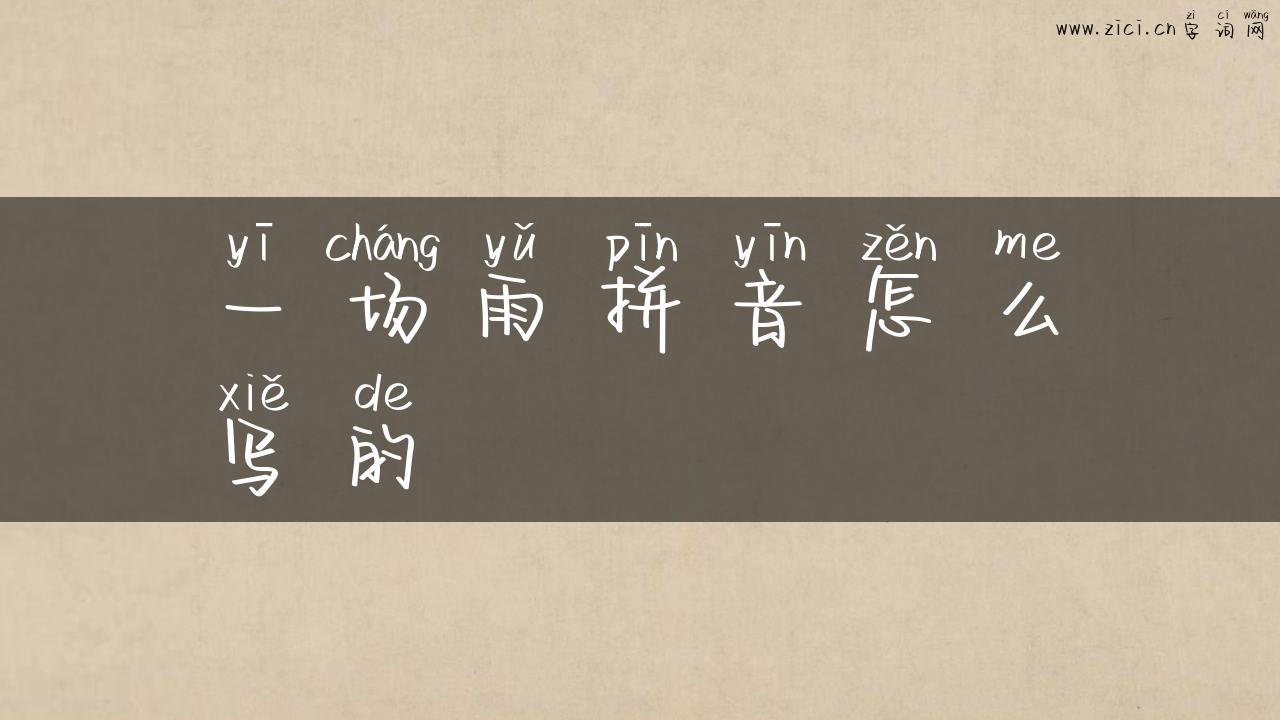 zì cí wǎng
www.zici.cn 字词网
yī cháng yǔ pīn yīn zěn me
一场雨拼音怎么
xiě de
写的